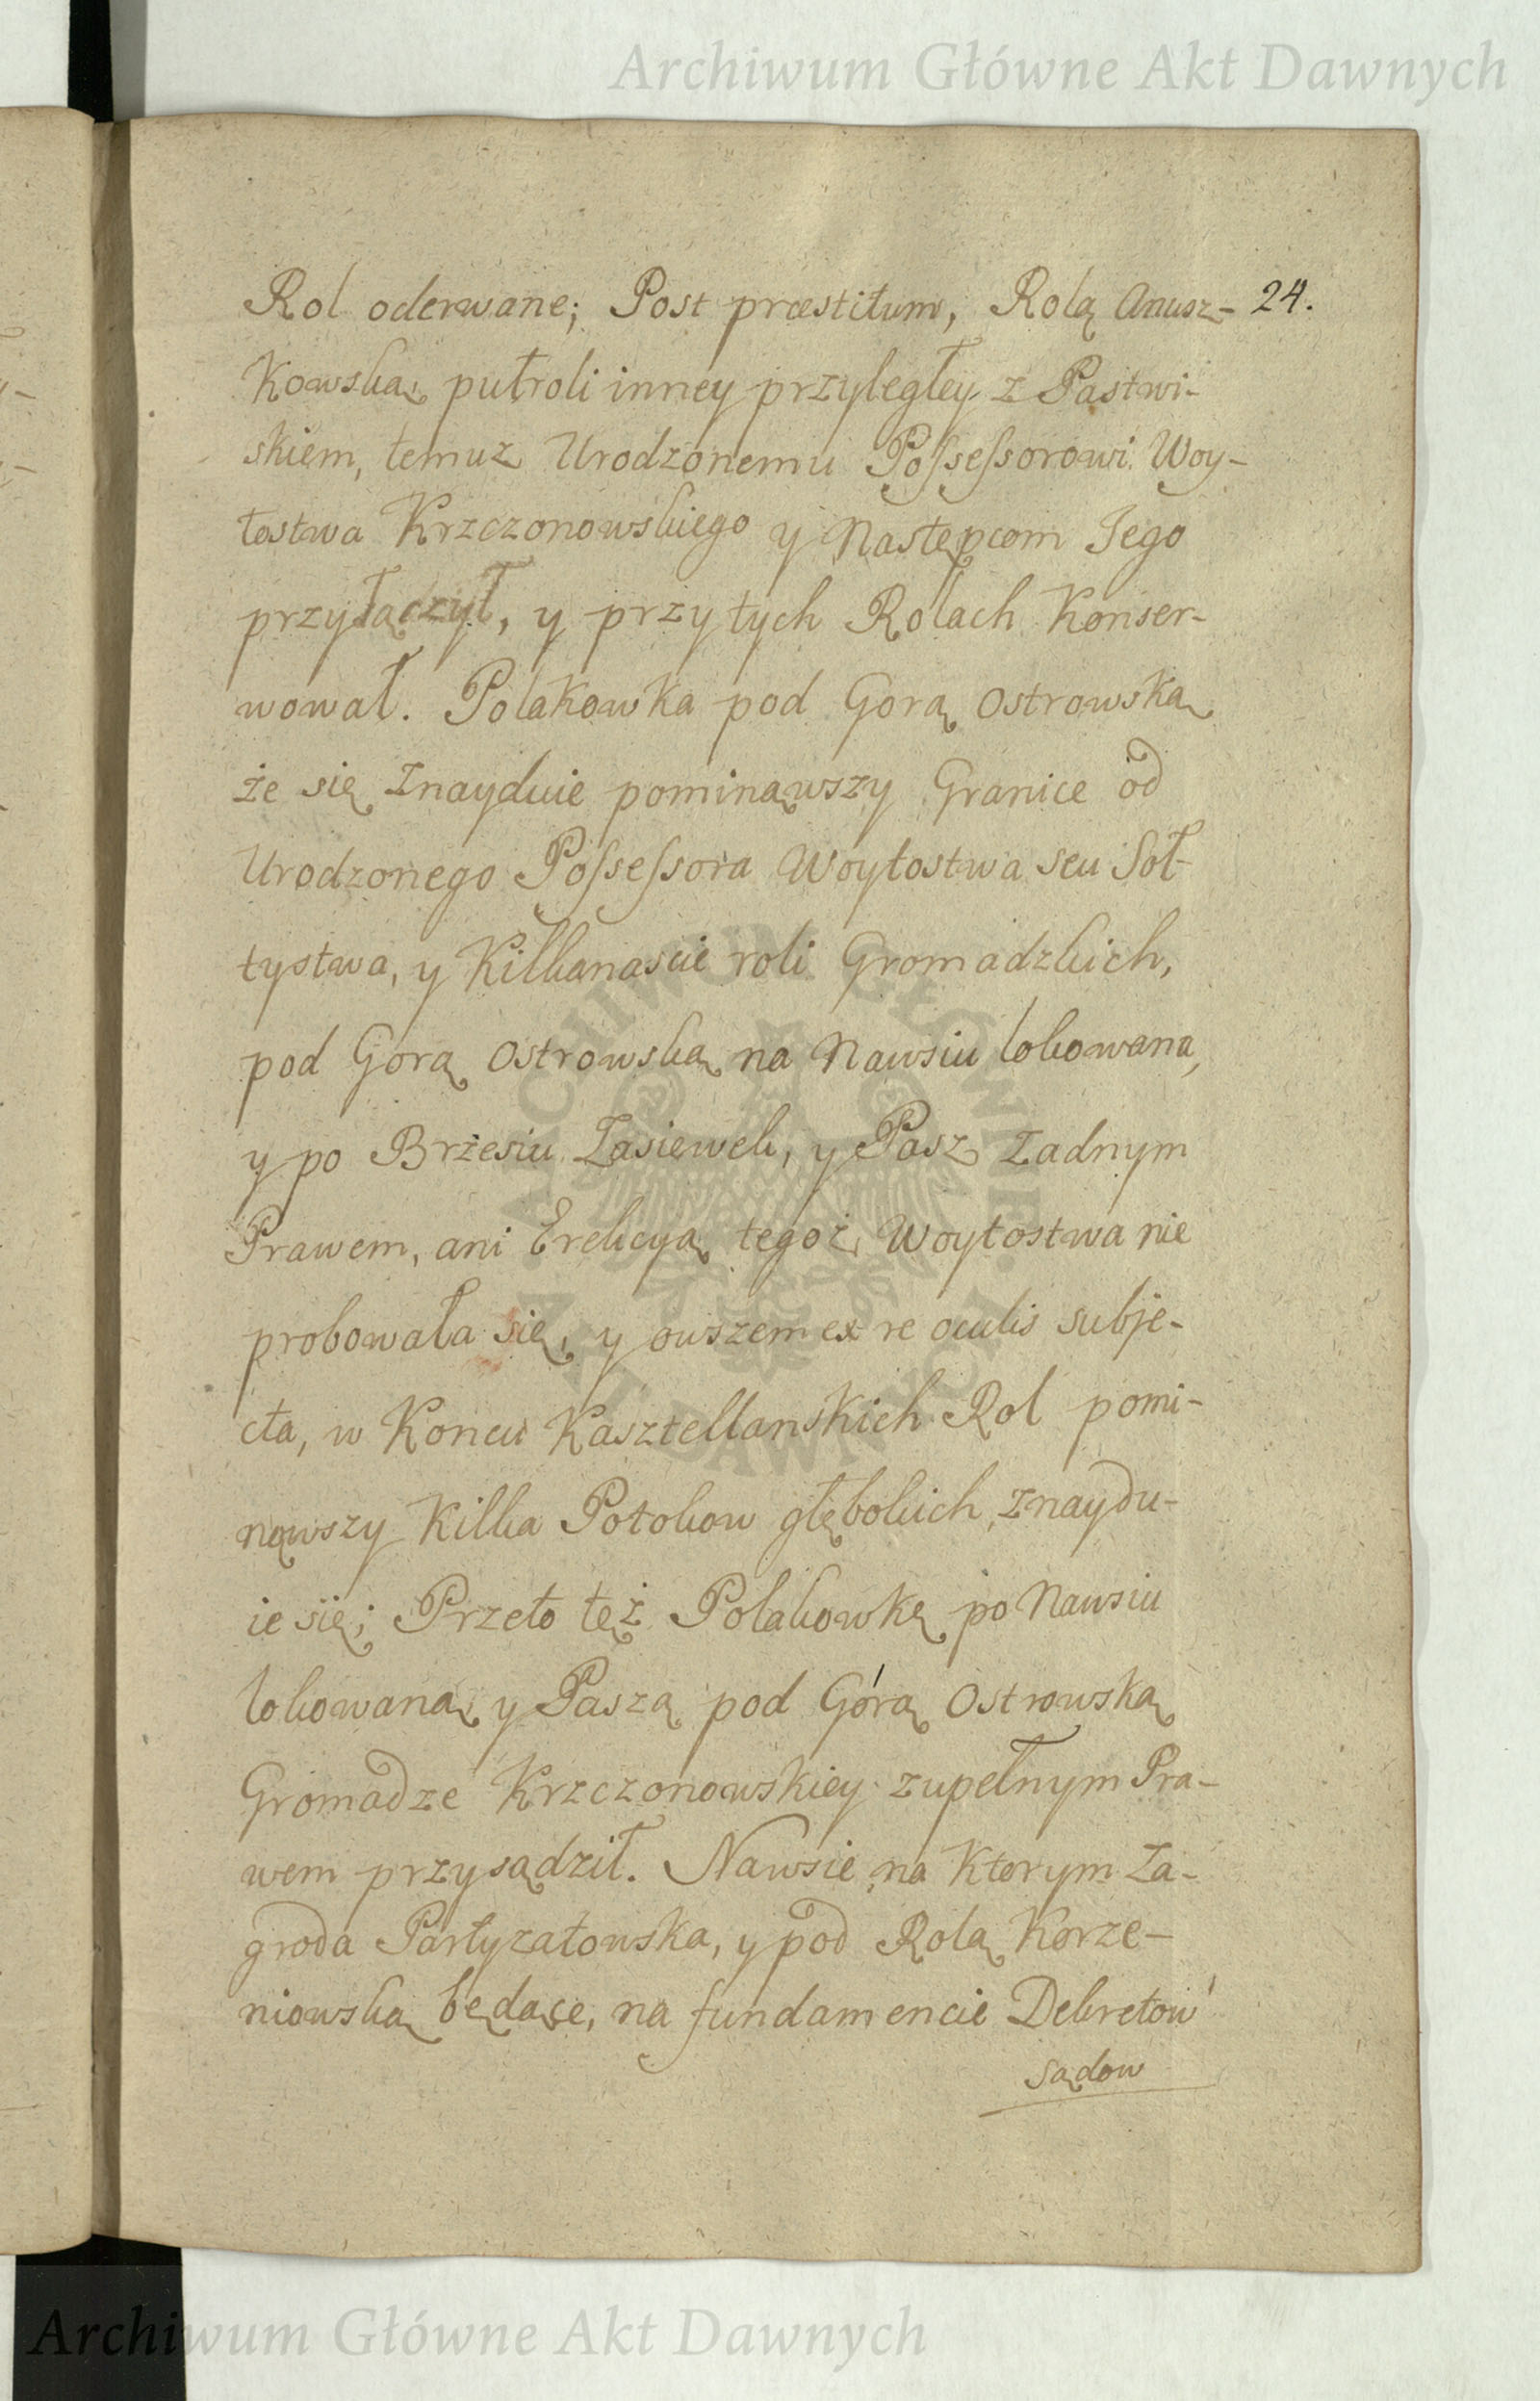 Archiwum Główne Akt Dawnych
Rol oderwane; Post præstitum, Rolą Anusz- 24.
Kowską, pułroli inney przyległey z Pastwi-
skiem, temuż Urodzonemu Possessorowi Woy-
tostwa Krzczonowskiego y Następcom Jego
przyłączył, y przy tych Rolach Konser-
wował. Polakowka pod Gorą Ostrowską
że się znayduie pominąwszy Granice od
Urodzonego Possessora Woytostwa seu Soł-
tystwa, y Kilkanascie roli Gromadzkich,
pod Gorą Ostrowską na Nawsiu lokowana,
y po Brzesiu Zasiewek, y Pasz żadnym
Prawem, ani Erekcyą tegoż Woytostwa nie
probowała się, y owszem ex re oculis subje-
cta, w Koncu Kasztellanskich Rol pomi-
nąwszy Kilka Potokow głębokich, znaydu-
ie się; Przeto też Polakowkę po Nawsiu
lokowaną y Paszą pod Górą Ostrowską
Gromadze Krzczonowskiey zupełnym Pra-
wem przysądził. Nawsie na Ktorym Za-
groda Partyzatowska, y pod Rolą Korze-
niowską będące, na fundamencie Dekretow
Sądow
ARCHIWUM GŁÓWNE AKT DAWNYCH
Archiwum Główne Akt Dawnych